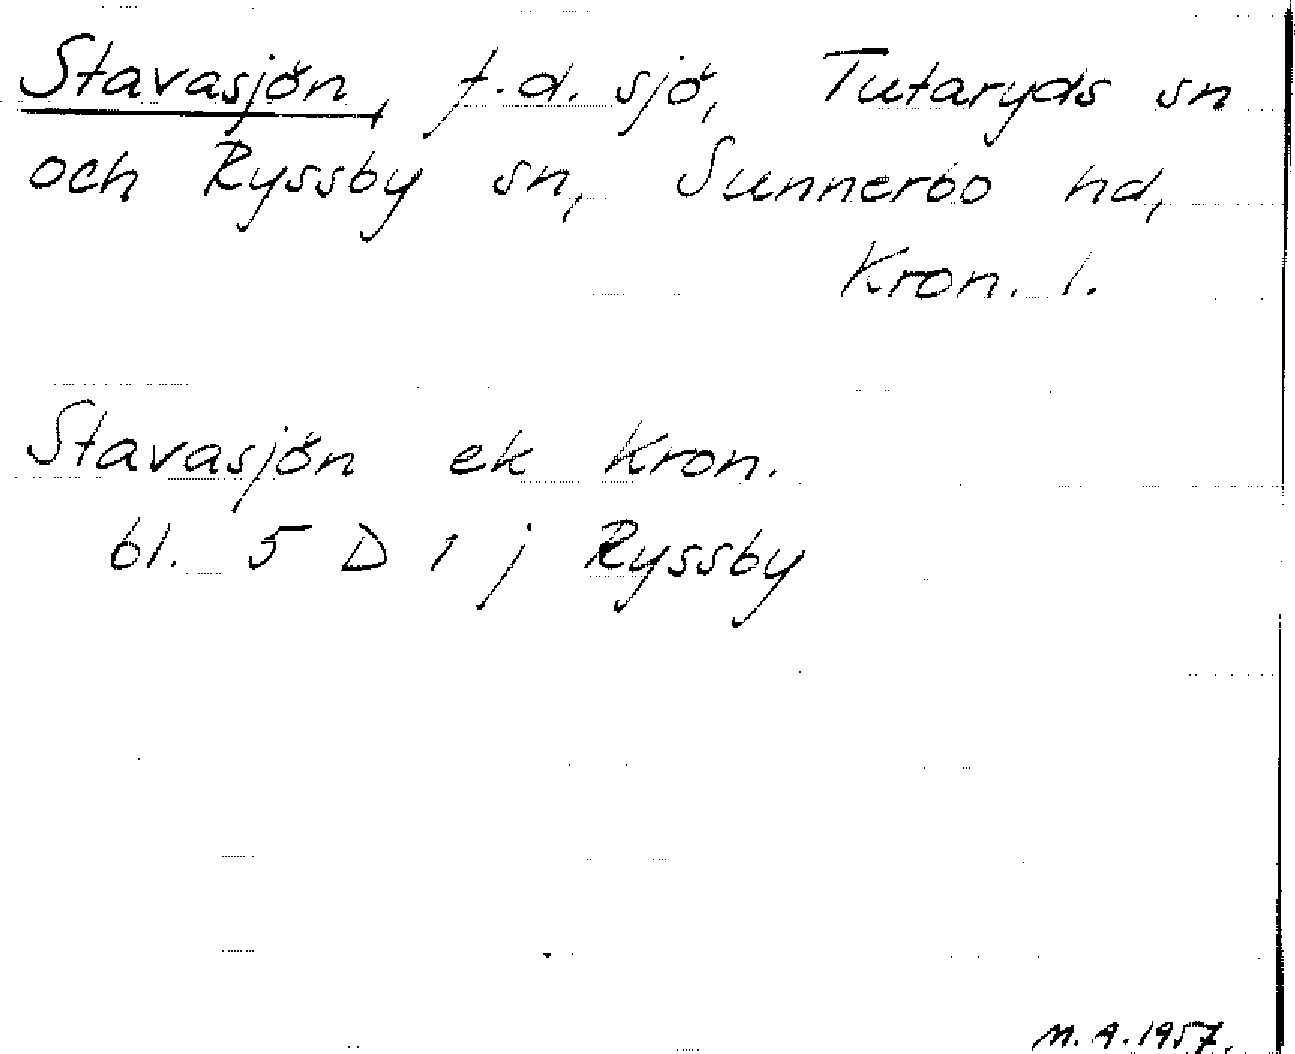 Stavasjön, f.d. sjö, Tutaryds sn
och Ryssby sn, Sunnerbo hd,
Kron. l.
Stavasjön ek Kron.
bl. 5 D 1 j Ryssby
M. A. 1957.